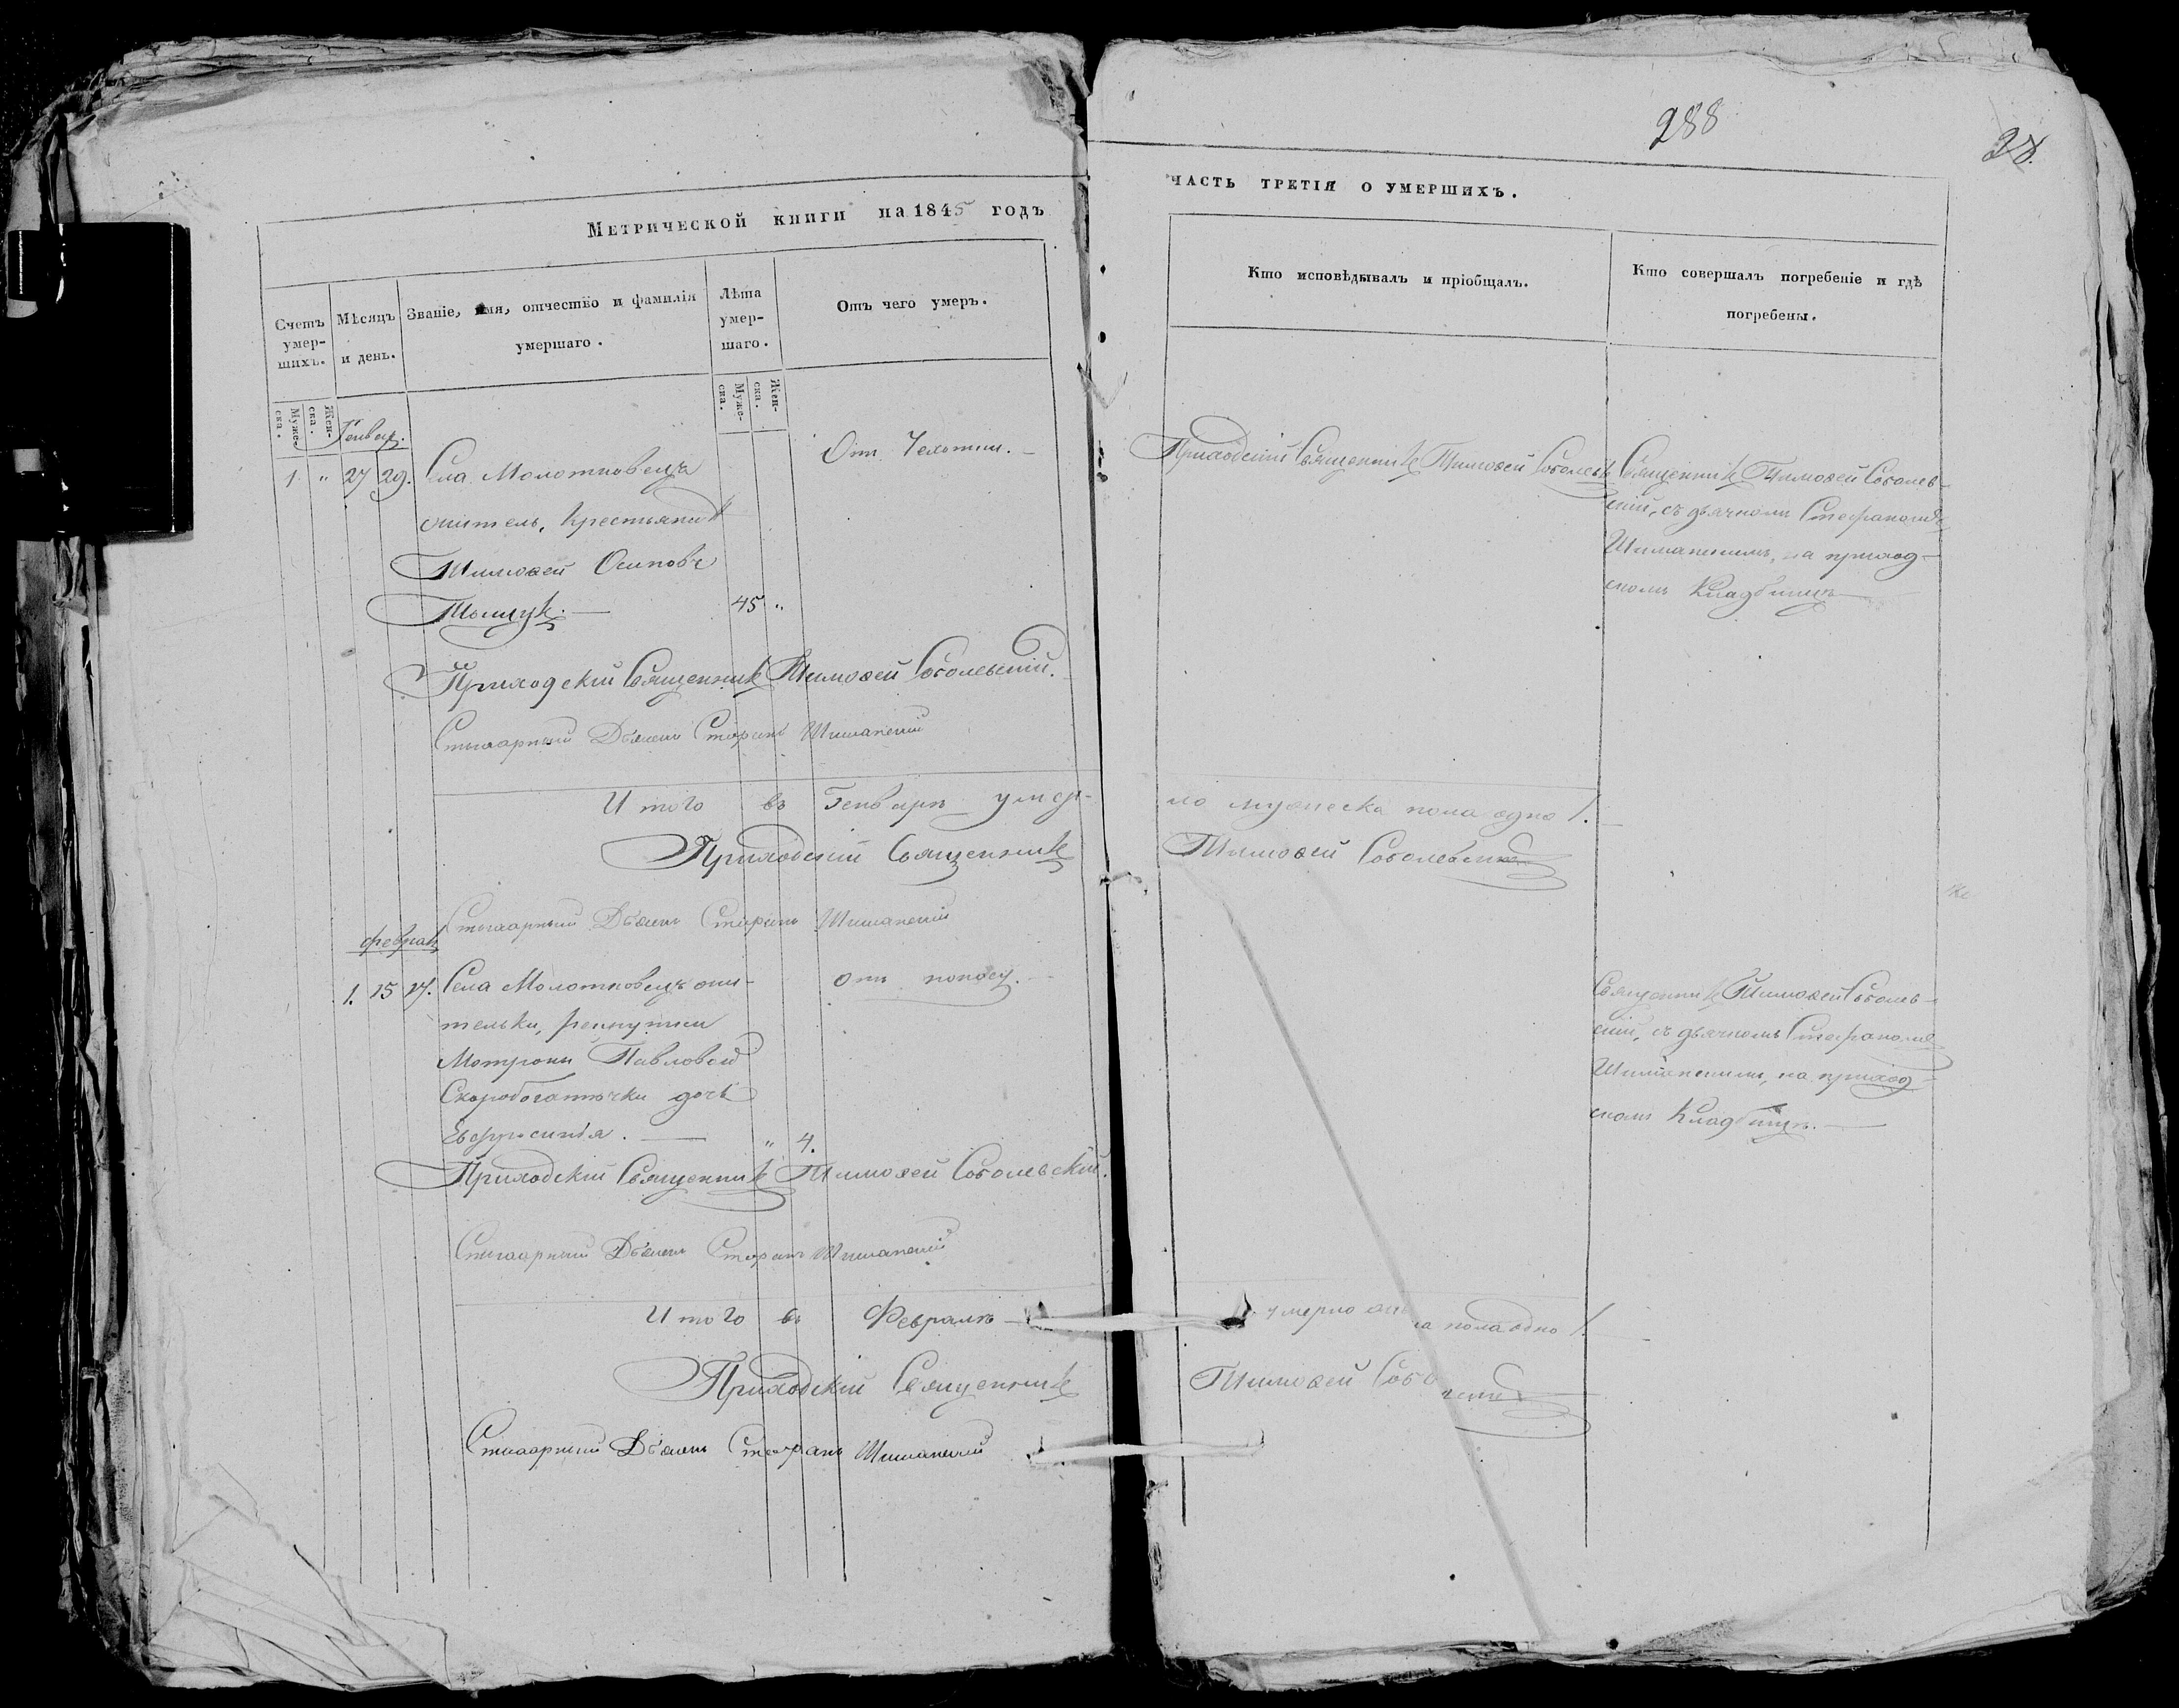 288
28.
Метрической книги на 1845 годъ
Часть третія о умершихъ.
Счетъ умер-шихъ.
Мѣсяцъ и день.
Званіе, имя, отчество и фамилія умершаго.
Лѣта умер-шаго.
Отъ чего умеръ.
Кто исповѣдывалъ и пріобщалъ.
Кто совершалъ погребеніе и гдѣ погребены.
Муже-ска.
Жен-ска.
Муже-ска.
Жен-ска.
Генвар.
1 " 27 29. Села Молотковецъ
житель, Крестьянинъ
Тимоѳей Осиповъ
45 "
Отъ
Приходскій Священникъ Тимоѳей Соболевскій
Священникъ Тимоѳей Соболев-
скій, съ дьячкомъ Стефаномъ
Шиманскимъ, на приход-
скомъ Кладбищѣ
Приходскій Священникъ Тимоѳей Соболевскій.
Стихарный Дьячекъ Стефанъ Шиманскій
Итого въ Генварѣ умер-
ло мужеска пола одно 1.
Приходскій Священникъ
Тимоѳей Соболевскій
Стихарный Дьячекъ Стефанъ Шиманскій
Феврал
1. 15 17. Села Молотковецъ жи-
тельки, рекрутки
Мотроны Павловой
Скоробогатычки дочь
Евфросинія. " 4.
Отъ поносу.
Священникъ Тимоѳей Соболев-
скій, съ дьячкомъ Стефаномъ
Шиманскимъ, на приход-
скомъ Кладбищѣ.
Приходскій Священникъ Тимоѳей Соболевскій.
Стихарный Дьячекъ Стефанъ Шиманскій
Итого въ Февралѣ
умерло пола одно 1.
Приходскій Священникъ
Тимоѳей
Стихарный Дьячекъ Стефанъ Шиманскій